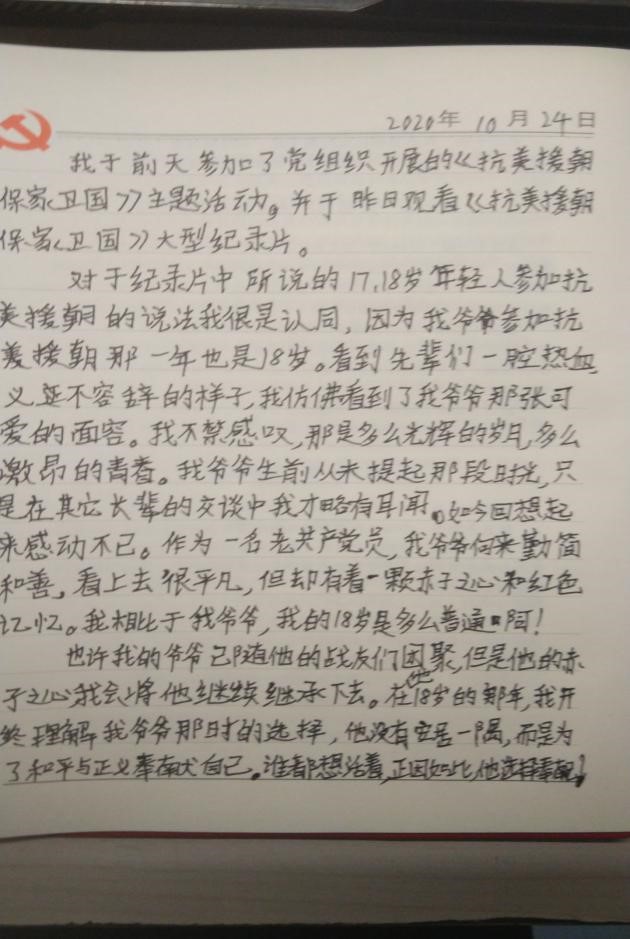 2020年 10月 24日
我于前天参加了党组织开展的《抗美援朝
保家卫国》主题活动。并于昨日观看《抗美援朝
保家卫国》大型纪录片。
对于纪录片中所说的17,18岁年轻人参加抗
美援朝的说法我很是认同,因为我爷爷参加抗
美援朝那一年也是18岁。看到先辈们一腔热血,
义无不容辞的样子,我仿佛看到了我爷爷那张可
爱的面容。我不禁感叹,那是多么光辉的岁月,多么
激昂的青春。我爷爷生前从未提起那段时光,只
是在其它长辈的交谈中我才略有耳闻。如今回想起
来感动不已。作为一名老共产党员,我爷爷向来勤简
和善,看上去很平凡,但却有着一颗赤子之心和红色
记忆。我相比于我爷爷,我的18岁是多么普通啊!
也许我的爷爷已随他的战友们团聚,但是他的赤
子之心我会将他继续继承下去。在他18岁的那年,我
终理解我爷爷那时的选择,他没有安居一隅,而是为
了和平与正义奉献自己。谁都想活着,正因如此,他选择奉献!